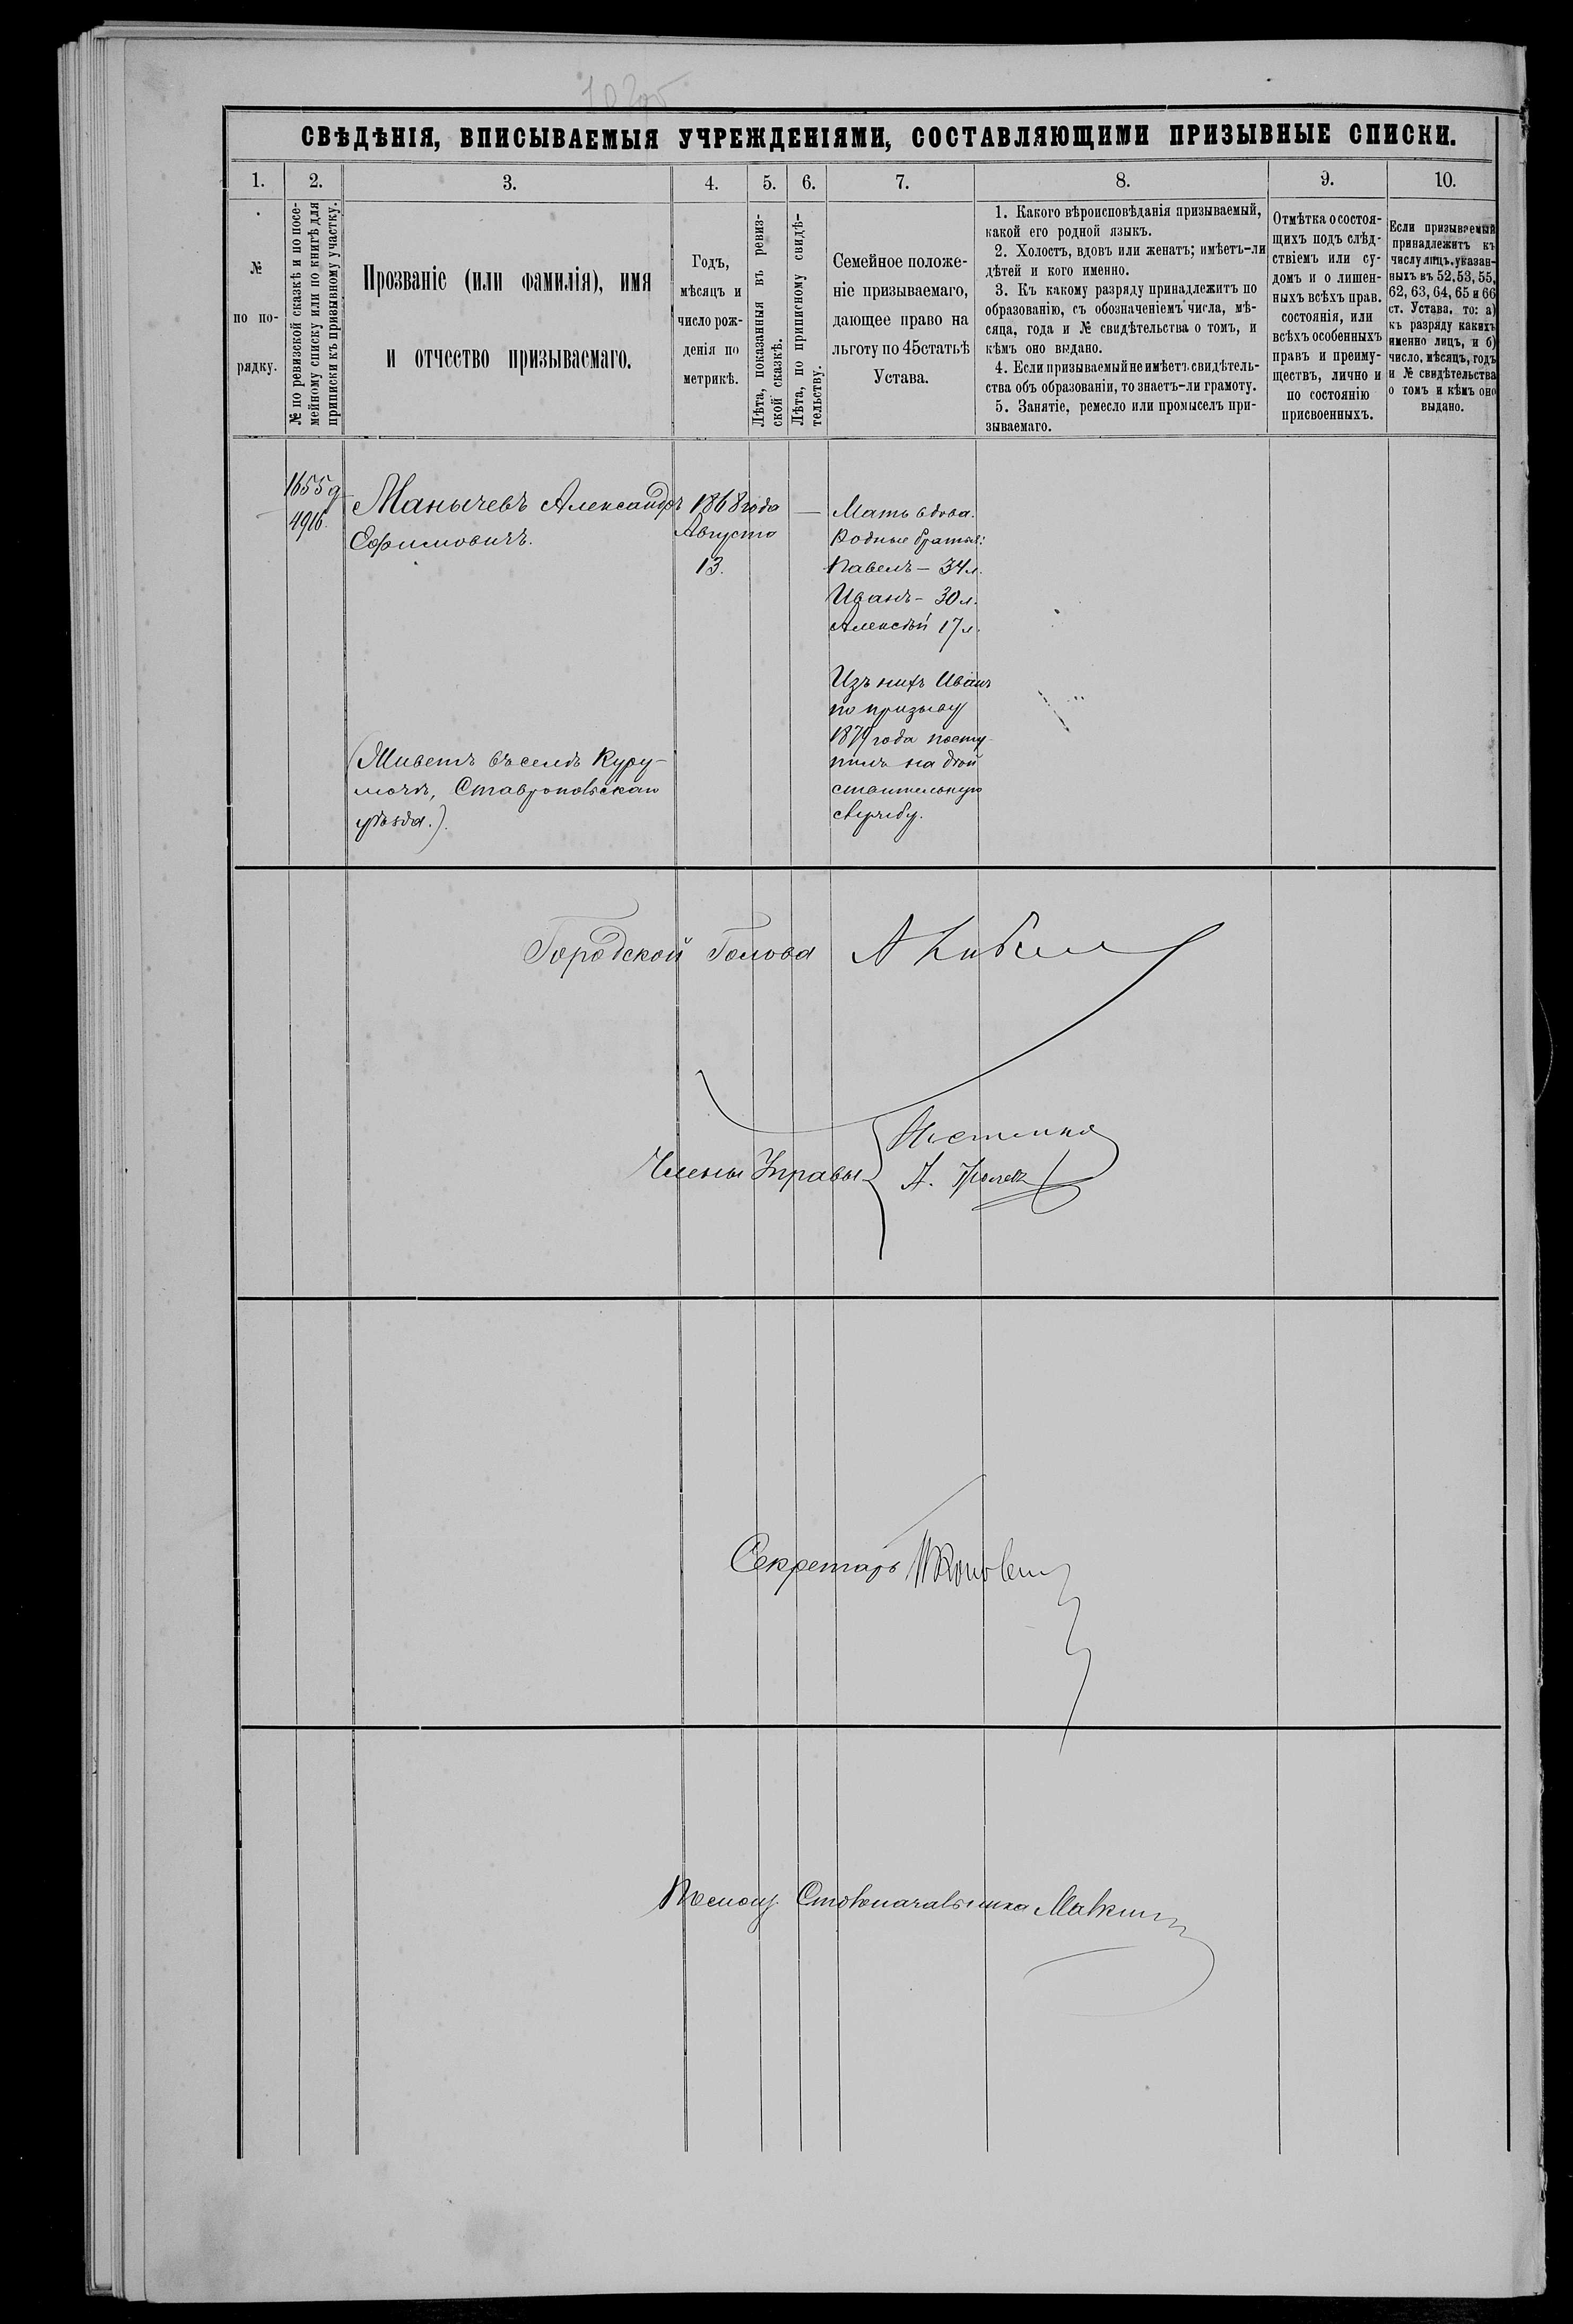 СВѢДѢНІЯ, ВПИСЫВАЕМЫЯ УЧРЕЖДЕНІЯМИ, СОСТАВЛЯЮЩИМИ ПРИЗЫВНЫЕ СПИСКИ.
1. 2. 3. 4. 5. 6. 7. 8. 9. 10.
№
по по-
рядку.
№ по ревизской сказкѣ и по посе-
мейному списку или по книгѣ для
приписки къ призывному участку.
Прозваніе (или фамилія), имя
и отчество призываемаго.
Годъ,
мѣсяцъ и
число рож-
денія по
метрикѣ.
Лѣта, показанныя въ ревиз-
ской сказкѣ.
Лѣта, по приписному свидѣ-
тельству.
Семейное положе-
ніе призываемаго,
дающее право на
льготу по 45 статьѣ
Устава.
1. Какого вѣроисповѣданія призываемый,
какой его родной языкъ.
2. Холостъ, вдовъ или женатъ; имѣетъ-ли
дѣтей и кого именно.
3. Къ какому разряду принадлежитъ по
образованію, съ обозначеніемъ числа, мѣ-
сяца, года и № свидѣтельства о томъ, и
кѣмъ оно выдано.
4. Если призываемый не имѣетъ свидѣтель-
ства объ образованіи, то знаетъ-ли грамоту.
5. Занятіе, ремесло или промыселъ при-
зываемаго.
Отмѣтка о состоя-
щихъ подъ слѣд-
ствіемъ или су-
домъ и о лишен-
ныхъ всѣхъ прав.
состоянія, или
всѣхъ особенныхъ
правъ и преиму-
ществъ, лично и
по состоянію
присвоенныхъ.
Если призываемый
принадлежитъ къ
числу лицъ, указан-
ныхъ въ 52, 53, 55,
62, 63, 64, 65 и 66
ст. Устава, то: а)
къ разряду какихъ
именно лицъ, и б)
число, мѣсяцъ, годъ
и № свидѣтельства
о томъ и кѣмъ оно
выдано.
4916.
Манычевъ Александръ
Ефимовичъ.
(Живетъ въ селѣ Куру-
мочѣ, Ставропольскаго
уѣзда.).
1868 года
Августа
13.
—
Мать вдова.
Родные братья:
Павелъ — 34 л.
Иванъ — 30 л.
Алексѣй 17 л.
Изъ нихъ Иванъ
по призыву
1879 года посту-
пилъ на дѣй
ствительную
службу.
Городской Голова
Члены Управы
Секретарь
Помощ. Столоначальника